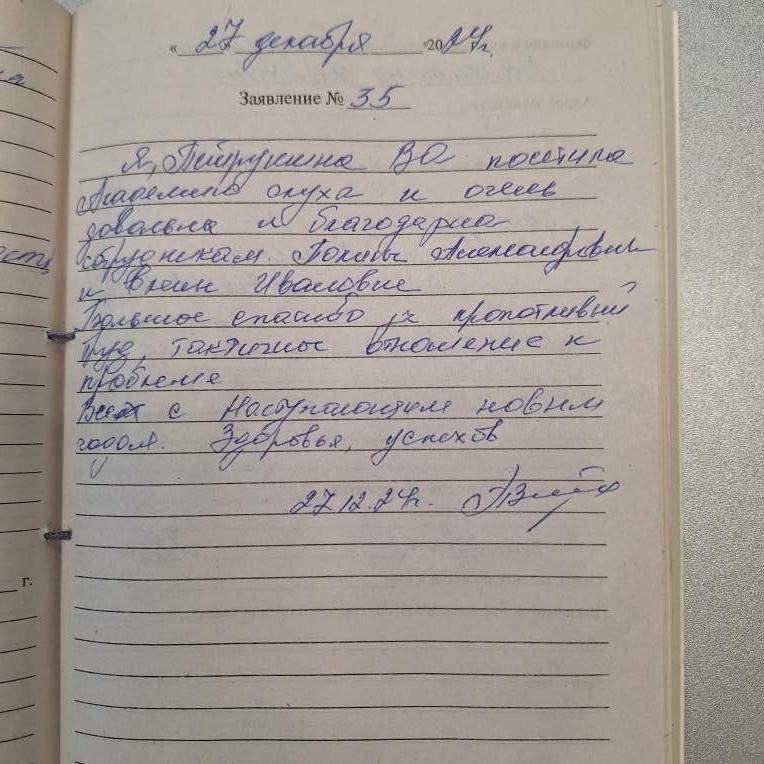 « 27 декабря 2024г.
Заявление № 35
Я, Петрунина ВО посетила
Академию слуха и очень
довольна и благодарна
сотрудникам. Александровне
и Елене Ивановне
Большое спасибо за кропотливый
труд, тактичное отношение к
проблеме
Всех с Наступающем новым
годом. Здоровья, успехов
27.12.24г.
г.